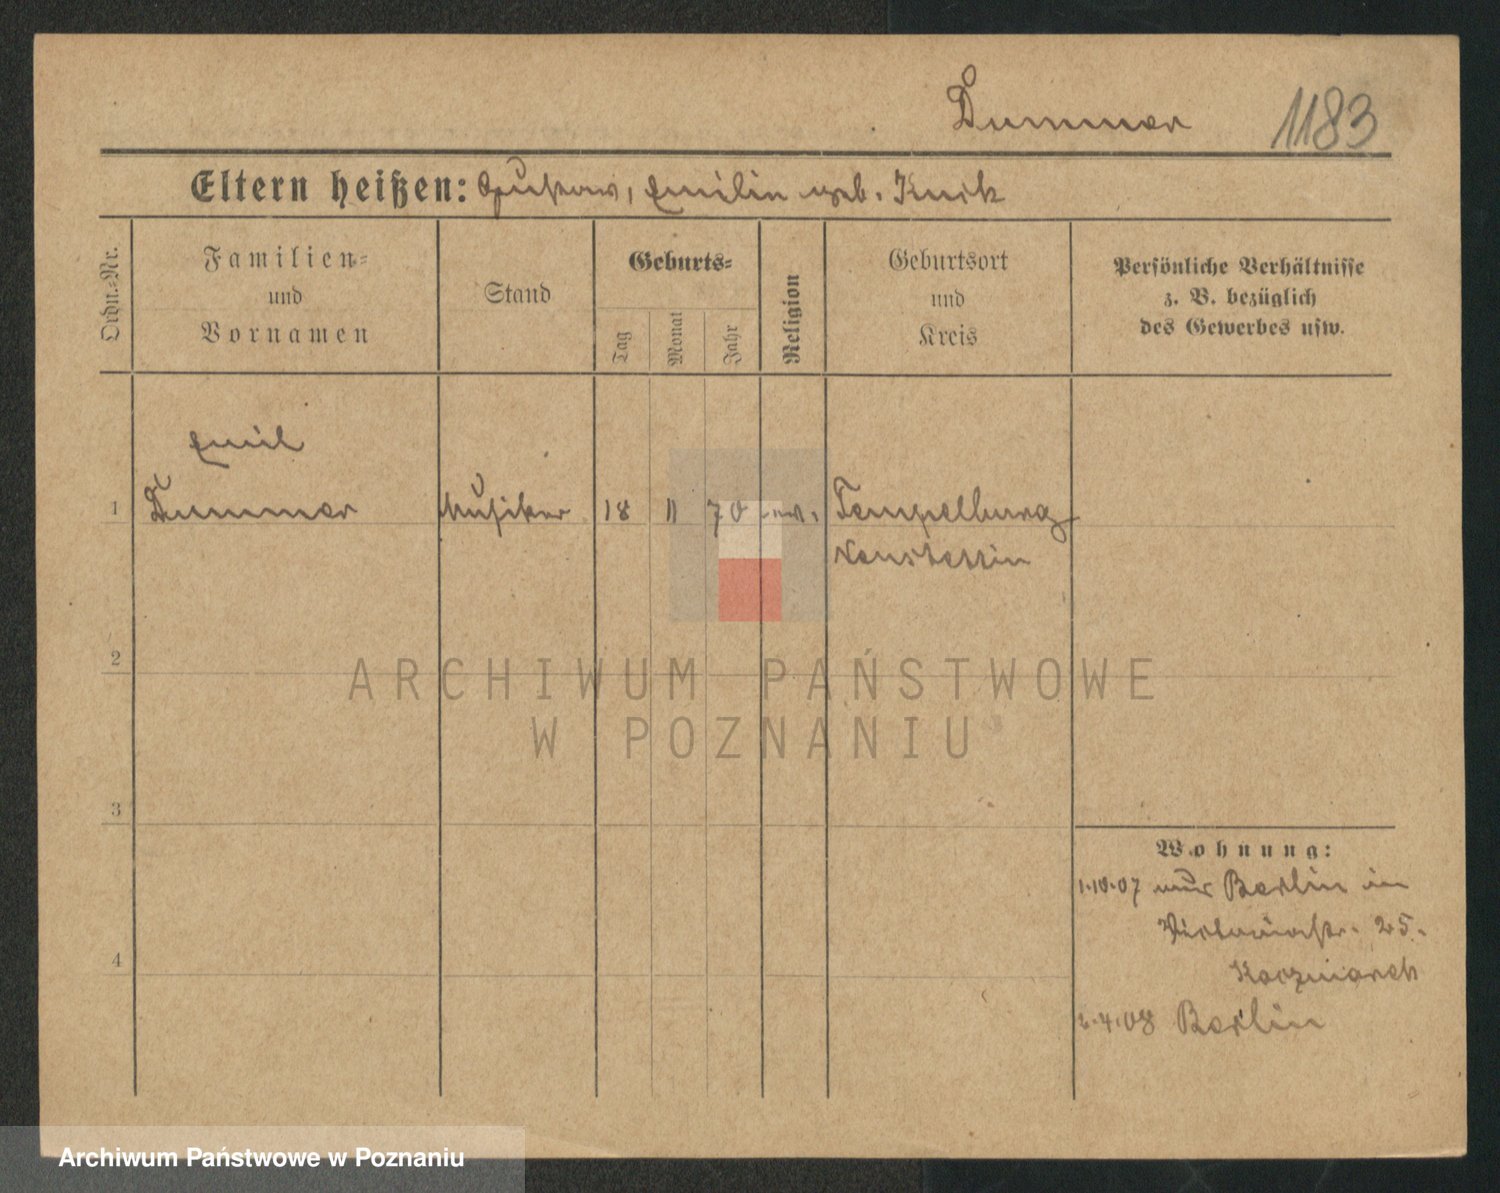 Dummer 1183
Eltern heißen: Gustav, Emilie geb. Knik
Ordn.-Nr.
Familien-
und
Vornamen
Stand
Geburts-
Tag
Monat
Jahr
Religion
Geburtsort
und
Kreis
Persönliche Verhältnisse
z. B. bezüglich
des Gewerbes usw.
Emil
1 Dummer Musiker 18 11 70 ev. Tempelburg
Neustettin
2
ARCHIWUM PAŃSTWOWE
W POZNANIU
3
4
Wohnung:
1.10.07 aus Berlin in
Viktoriastr. 25.
Kaczmarek
2.4.08 Berlin
Archiwum Państwowe w Poznaniu